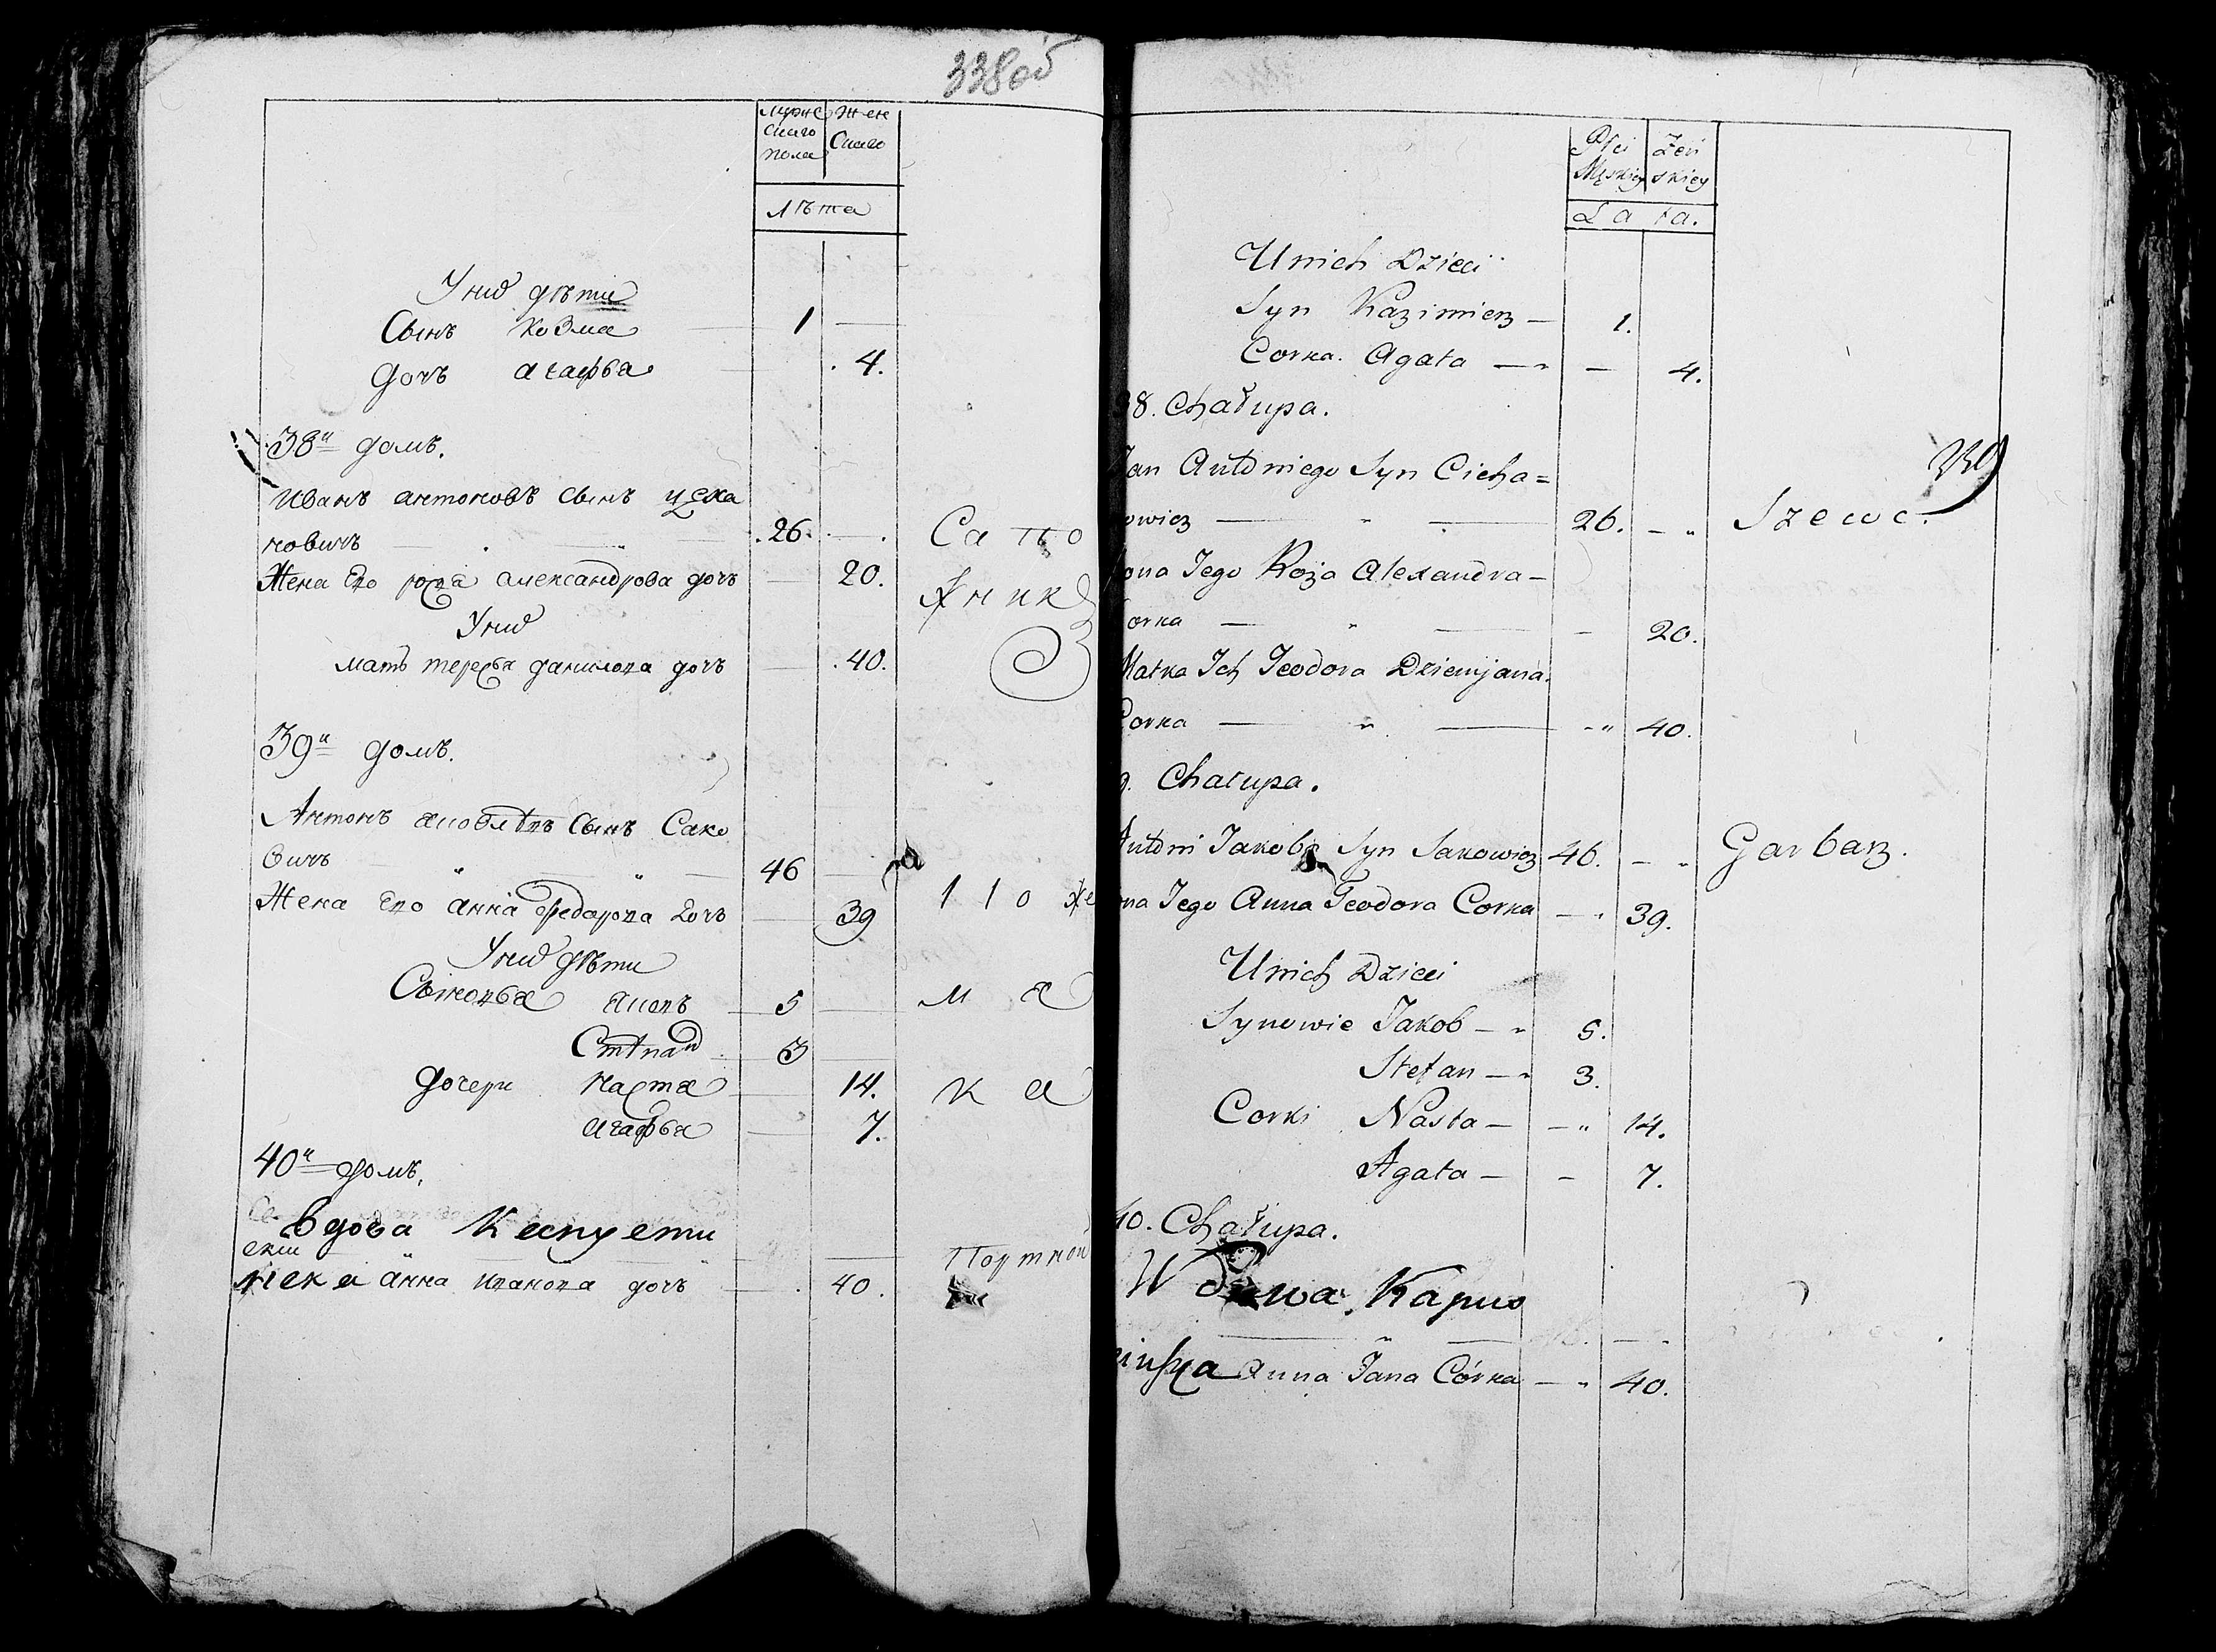 338об
Мужс Жен
скаго скаго
пола
Лѣта
У них дѣти
Сынъ Козма 1 —
дочь агафья — 4.
38й домъ.
Иванъ антоновъ сынъ цеха
новичъ — 26. — Сапо
Жена Его роза александрова дочь — 20. жникъ
У них
мать тереса данилова дочь — 40.
39й домъ.
Антонъ яковлевъ сынъ Сако
вичъ — " — 46 —
Жена Его анна федорова дочь — 39
У них дѣти
Сыновья яковъ 5 —
Степан 3 —
дочери наста — 14.
агафья — 7.
40й домъ.
вдова
анна иванова дочь — 40.
Портной
Płci Żeń
Męskiey skiey
Lata.
U nich Dzieci
Syn Kazimierz — 1.
Corka Agata — — 4.
38. Chałupa.
Jan Antoniego Syn Cicha=
owicz — " — 26. — " Szewc.
ona Jego Roża Alexandra —
orka — " — — 20.
Matka Ich Teodora Dziemjana
Corka — " — — " 40.
9. Chałupa.
Antoni Jakoba Syn Sakowicz 46. — " Garbarz.
na Jego Anna Teodora Corka — " 39.
U nich Dzieci
Synowie Jakob — " 5.
Stefan — " 3.
Corki Nasta — — " 14.
Agata — — 7.
40. Chałupa.
Wdowa Kapus
Anna Jana Córka — " 40.